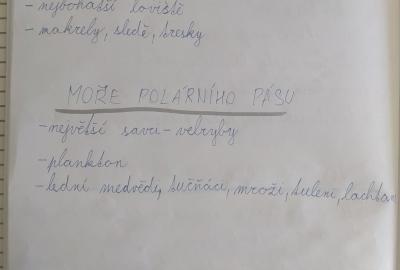 - nejbohatší loviště
- makrely, sledě, tresky
MOŘE POLÁRNÍHO PÁSU
- největší savci - velryby
- plankton
- lední medvědy, tučňáci, mroži, tuleni, lachtan